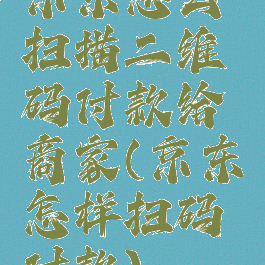 京东怎么
扫描二维
码付款给
商家(京东
怎样扫码
付款)